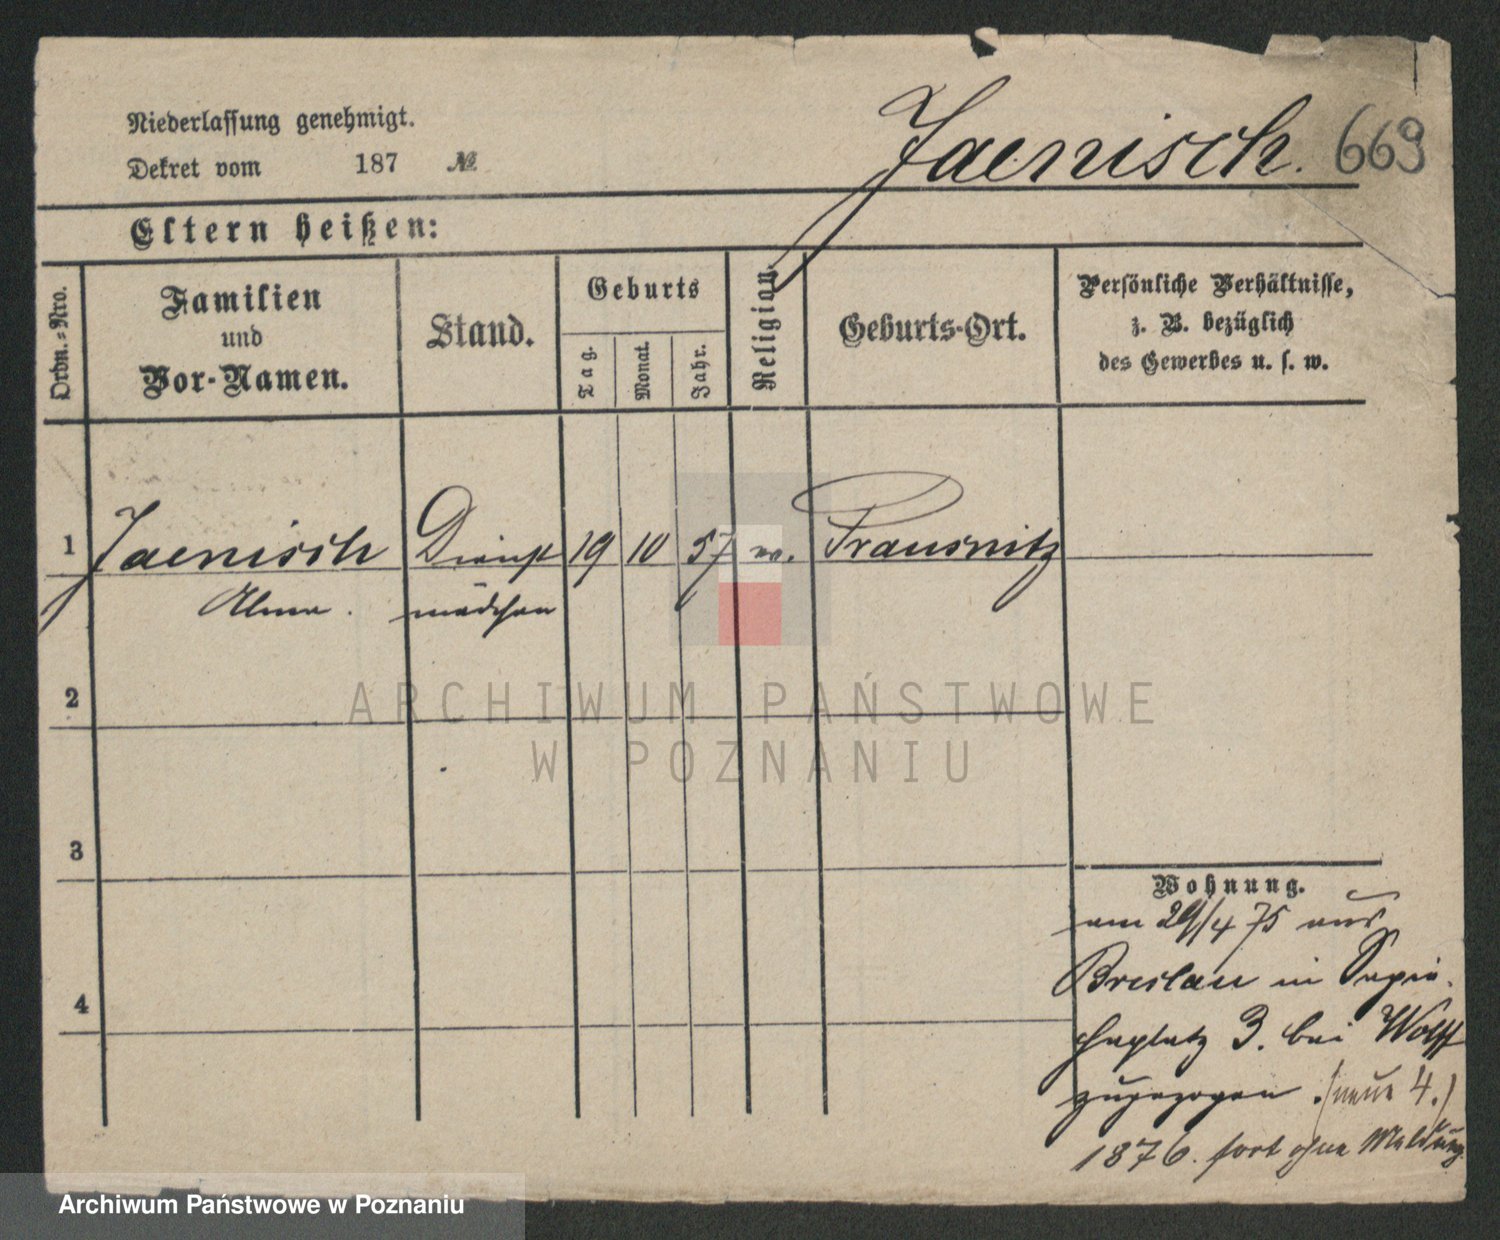 Niederlassung genehmigt.
Dekret vom 187 №
Jaenisch. 669
Eltern heißen:
Ordn.-Nro.
Familien
und
Vor-Namen.
Stand.
Geburts
Tag.
Monat.
Jahr.
Religion.
Geburts-Ort.
Persönliche Verhältnisse,
z. B. bezüglich
des Gewerbes u. s. w.
1 Jaenisch Dienst 19 10 57 Prausnitz
mädchen
2
3
4
Wohnung.
am 29/4 75 aus
Breslau in Sapie-
haplatz 3. bei Wolff
zugezogen. (neue 4.)
1876. fort ohne Meldung
ARCHIWUM PAŃSTWOWE
W POZNANIU
Archiwum Państwowe w Poznaniu